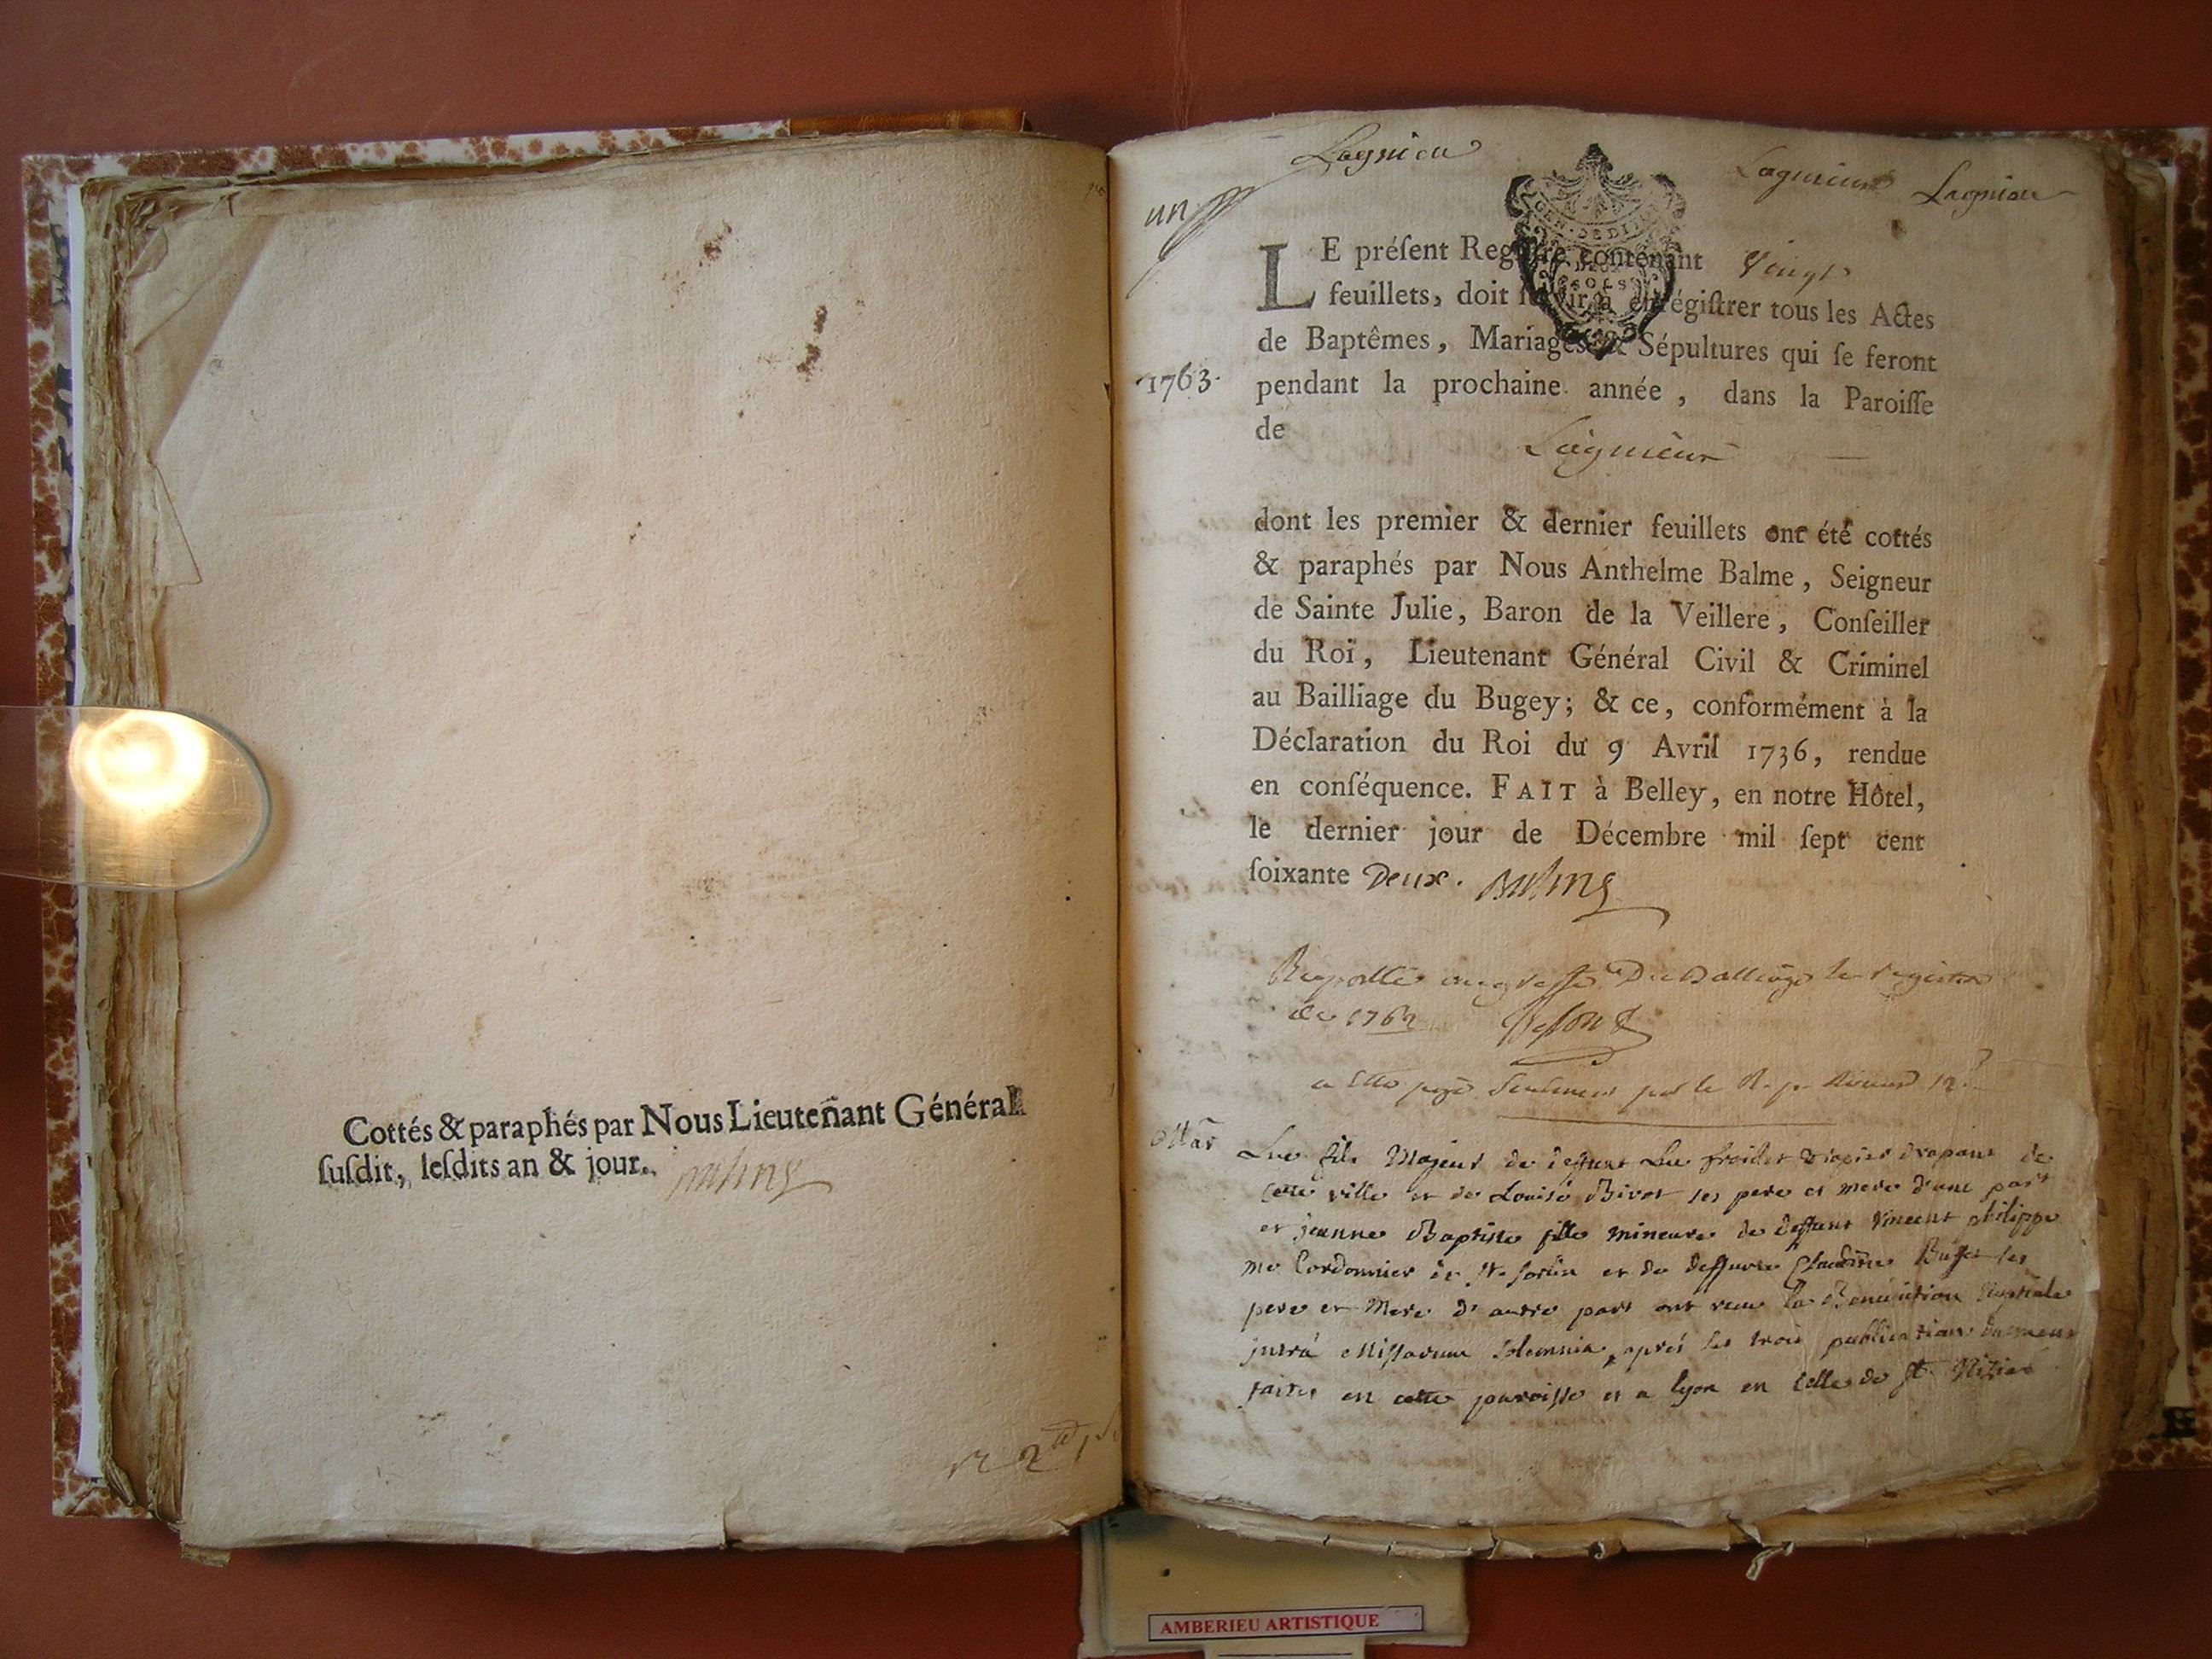 Cottés & paraphés par Nous Lieuteñant Général
ſuſdit, leſdits an & jour.
Lagnieu
Lagnieu
un
LE préſent Regiſtre contenant Vingt
feuillets, doit ſervir à enrégiſtrer tous les Actes
de Baptêmes, Mariages & Sépultures qui ſe feront
1763.
pendant la prochaine année, dans la Paroiſſe
de
Lagnieu
dont les premier & dernier feuillets ont été cottés
& paraphés par Nous Anthelme Balme, Seigneur
de Sainte Julie, Baron de la Veillere, Conſeiller
du Roi, Lieutenant Général Civil & Criminel
au Bailliage du Bugey; & ce, conformément à la
Déclaration du Roi du 9 Avril 1736, rendue
en conſéquence. FAIT à Belley, en notre Hôtel,
le dernier jour de Décembre mil ſept cent
ſoixante Deux. Balme
de 1762
Mar
Luc fils Majeur de deffunt Luc
cette ville et de Louise ses pere et mere d'une part
et jeanne Baptiste fille mineure de deffunt Vincent philippe
Me Cordonnier de St. sorlin et de deffunte Claudine ses
pere et Mere d'autre part ont recu la Benediction Nuptiale
intra Missarum solemnia, aprés les trois publications
faites en cette paroisse et a lyon en celle de St. Nizier
AMBERIEU ARTISTIQUE